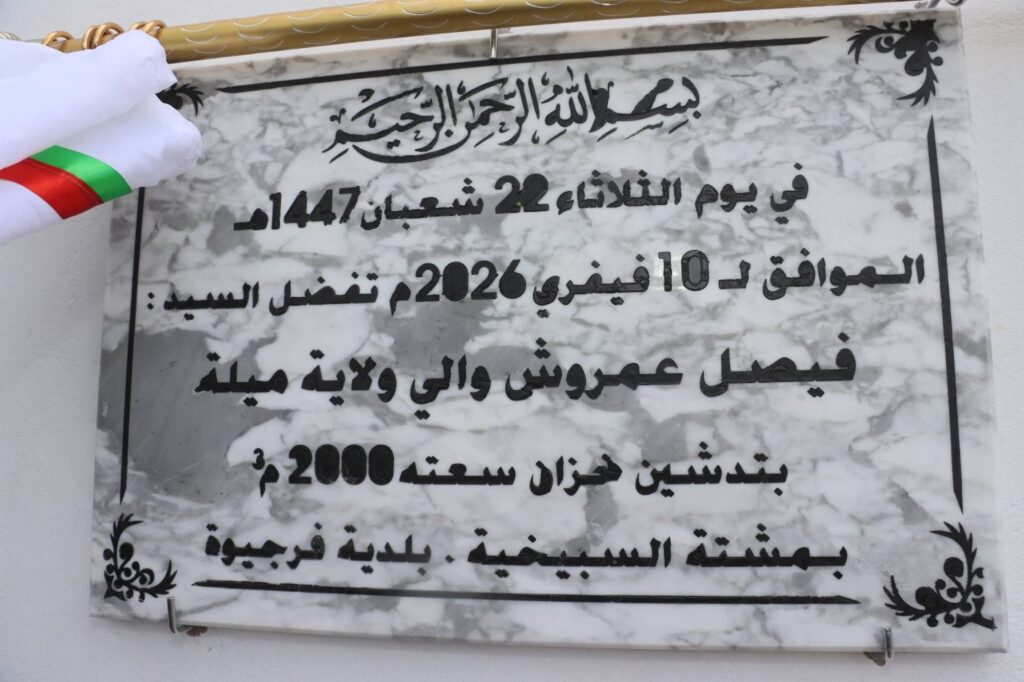 بسم الله الرحمن الرحيم
في يوم الثلاثاء 22 شعبان 1447هـ
الموافق لـ 10 فيفري 2026م تفضل السيد :
فيصل عمروش والي ولاية ميلة
بتدشين خزان سعته 2000 م³
بمشتة السبيخية . بلدية فرجيوة